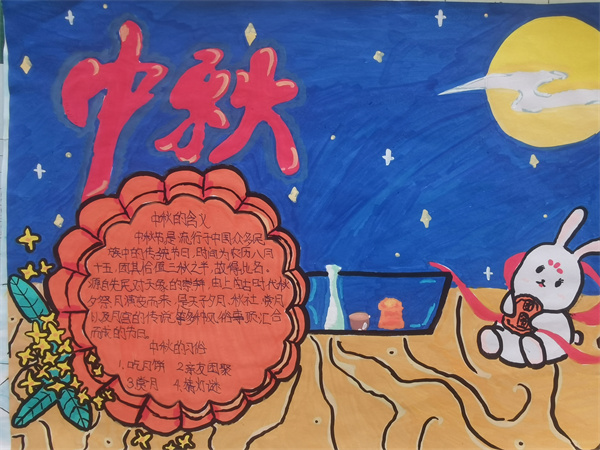 中秋
中秋的含义
中秋节是流行于中国众多民
族中的传统节日,时间为农历八月
十五,因其恰值三秋之半,故得此名,
源自先民对天象的崇拜,由上古时代秋
夕祭月演变而来,是天子夕月、秋社、赏月
以及月宫的传说等多种风俗事项汇合
而成的节日。
中秋的习俗
1、吃月饼 2亲友团聚
3赏月 4、猜灯谜